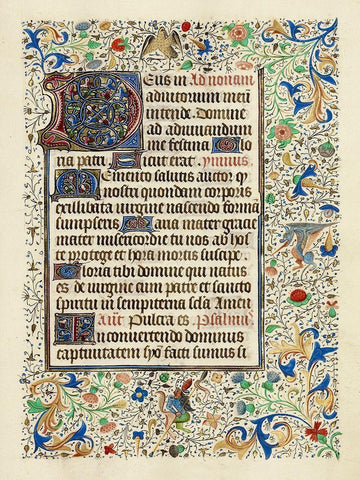 Deus in Ad nonam
adiutorium meū
intende. Domine
ad adiuuandum
me festina Glo
ria patri Sicut erat. ymnus.
Memento salutis auctor q
nostri quondam corporis
ex illibata virgine nascendo formā
sumpseris Maria mater gracie
mater misericordie tu nos ab hoste
protege et hora mortis suscipe
Gloria tibi domine qui natus
es de virgine cum patre et sancto
spiritu in sempiterna secla Amen
Añt Pulcra es Psalmus
In conuertendo dominus
captiuitatem syon facti sumus si